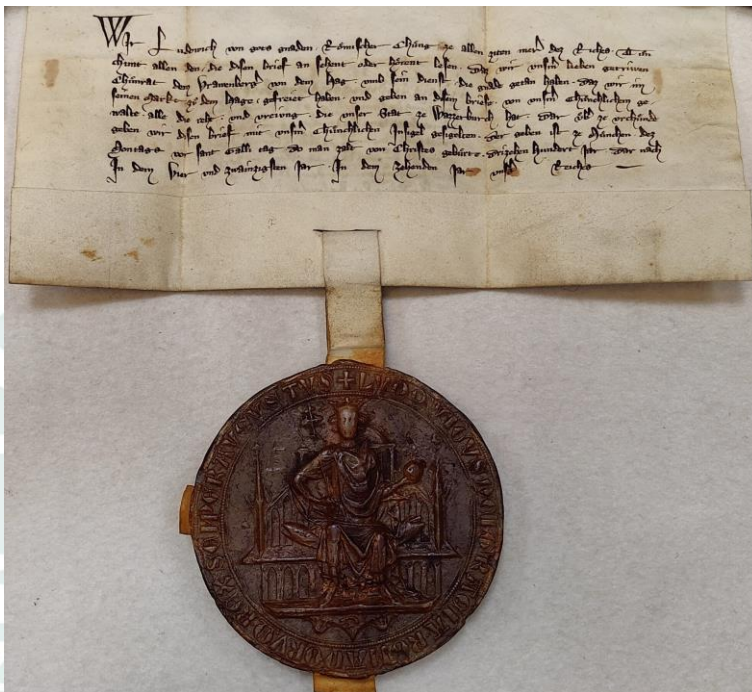 Wir Ludowich von gotes gnaden Römischer Chünig ze allen ziten merer dez Riches Tun
chunt allen den die disen brief an sehent oder hörent lesen daz wir unserm lieben getriwen
Chünrat dem Vravenberger von dem Hag umb sein dienst die gnade getan haben daz wir im
seinen Marcht ze dem Hage gefreiet haben und geben an disem brief von unserm Chünchlichem ge
walte alle die reht und vreiung die unser Stat ze Wazzerburch hat Dar über ze urchünde
geben wir disen brief mit unserm Chünchlichen Insigel Der geben ist ze München dez
Montags vor sant Galli tag do man zalt von Christes gebürt drizehen hundert jar dar nach
In dem vier und zwainzigsten jar In dem zehenden jar unsers Riches
+ LVDOVICVS DEI GRACIA ROMANORVM REX SEMPER AVGVSTVS